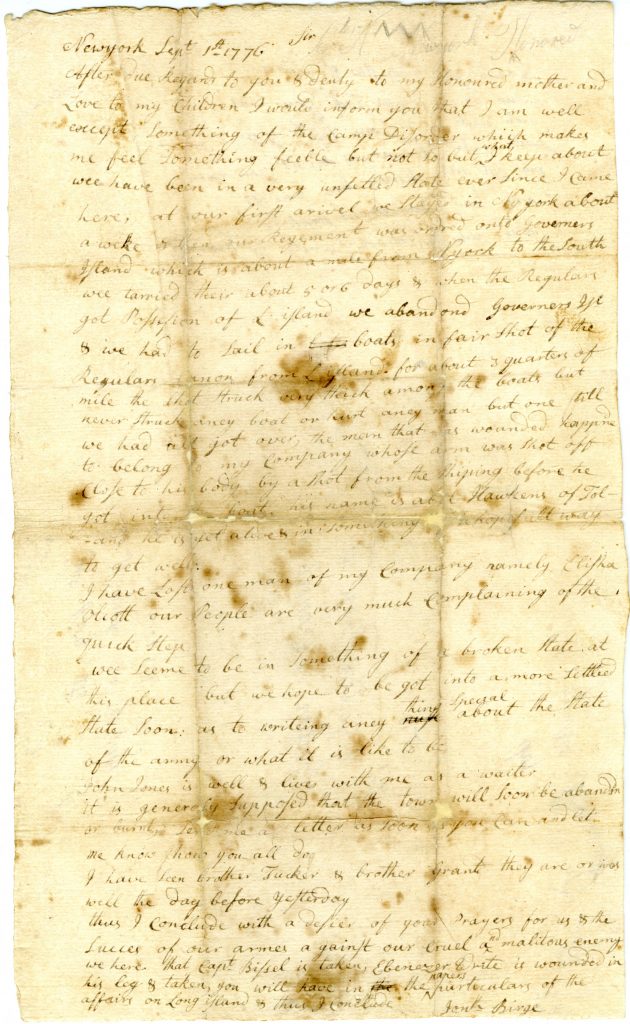 Newyork Sept 1st 1776 Sir
After due Regards to you & deuty to my Honoured mother and
Love to my Children I would inform you that I am well
except Something of the Camp Disorder which makes
me feel Something feeble but not so but what I keep about
wee have been in a very unsettled State ever Since I Came
here, at our first arivel we Stayed in NYyork about
a weke & then our Regement was ordred onto Governers
Island which is about a mile from Nyork to the South
wee tarried their about 5 or 6 days & when the Regulars
got Possession of L island we abandond Governers Isl
& we had to Sail in boats in fair Shot of the
Regulars Canon from L Island for about 3 quarters of
mile the Shot Struck very thick among the boats but
never Struck aney boat or hurt aney man but one till
we had all got over, the man that was wounded happne
to belong to my Company whose arm was Shot off
Close to his body by a Shot from the Shiping before he
got into boat his name is Hawkens of Tol-
land he is yet alive & in Something hopefull way
to get well.
I have Lost one man of my Company namely Elisha
Olcott our People are very much Complaining of the
quick Step
wee Seeme to be in Something of a broken State at
this place but we hope to be got into a more Settled
State Soon: as to writeing aney thing Special about the State
of the army or what it is like to be
John Jones is well & lives with me as a waiter
it is generely Supposed that the town will Soon be abandn
or burnt. Send me a letter as Soon as you Can and let
me know how you all do
I have Seen brother Tucker & brother Grant they are or was
well the day before yesterday
thus I Conclude with a desier of your Prayers for us & the
Succes of our armes against our Cruel and malitous enemy
we here that Capt Bissel is taken, Ebenezer is wounded in
his leg & taken, you will have in the papers the particulars of the
affairs on Long island & thus I conclude Jonth Birge